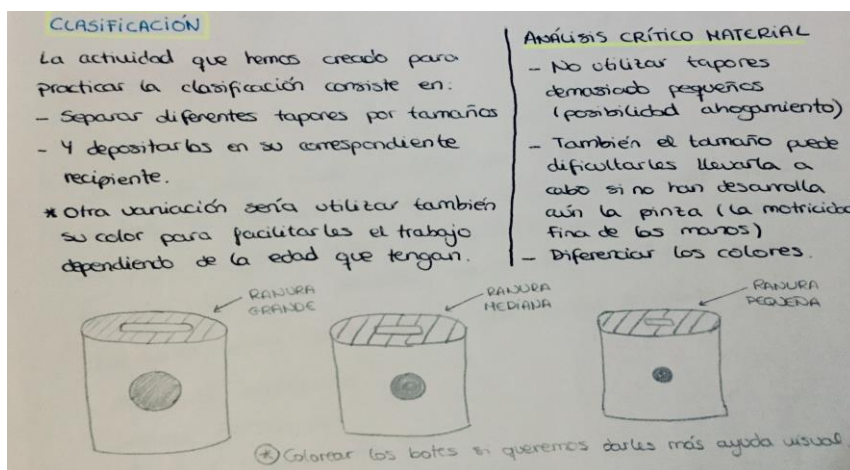 CLASIFICACIÓN
La actividad que hemos creado para
practicar la clasificación consiste en:
- Separar diferentes tapones por tamaños
- Y depositarlos en su correspondiente
recipiente.
* Otra variación sería utilizar también
su color para facilitarles el trabajo
dependiendo de la edad que tengan.
ANÁLISIS CRÍTICO MATERIAL
- No utilizar tapones
demasiado pequeños
(posibilidad ahogamiento)
- También el tamaño puede
dificultarles llevarla a
cabo si no han desarrolla
aún la pinza (la motricidad
fina de las manos)
- Diferenciar los colores.
RANURA
GRANDE
RANURA
MEDIANA
RANURA
PEQUEÑA
* Colorear los botes si queremos darles más ayuda visual.